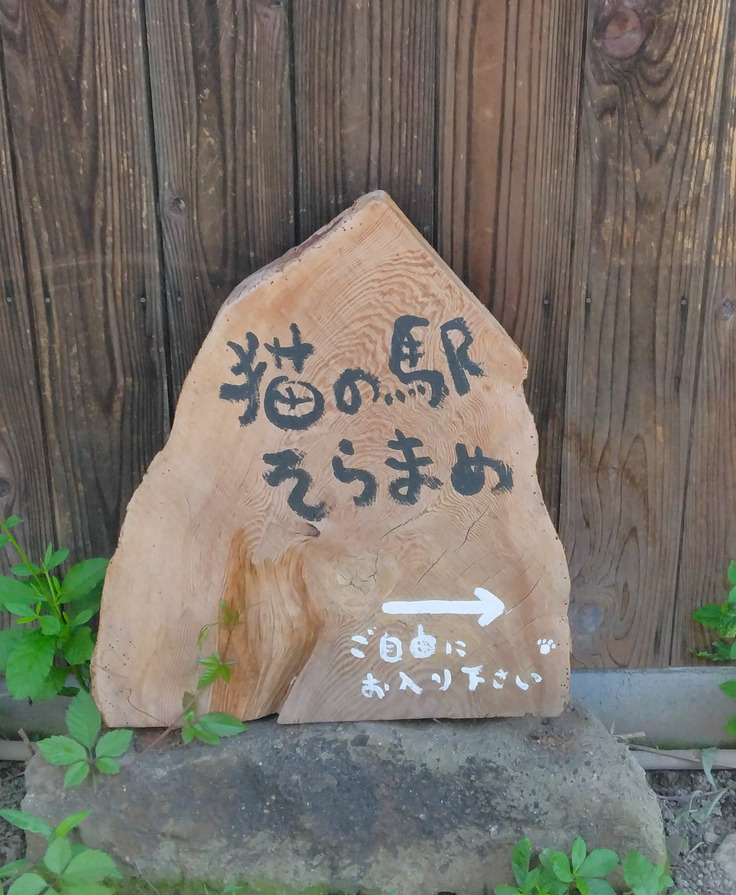 猫の駅
そらまめ
ご自由に
お入り下さい